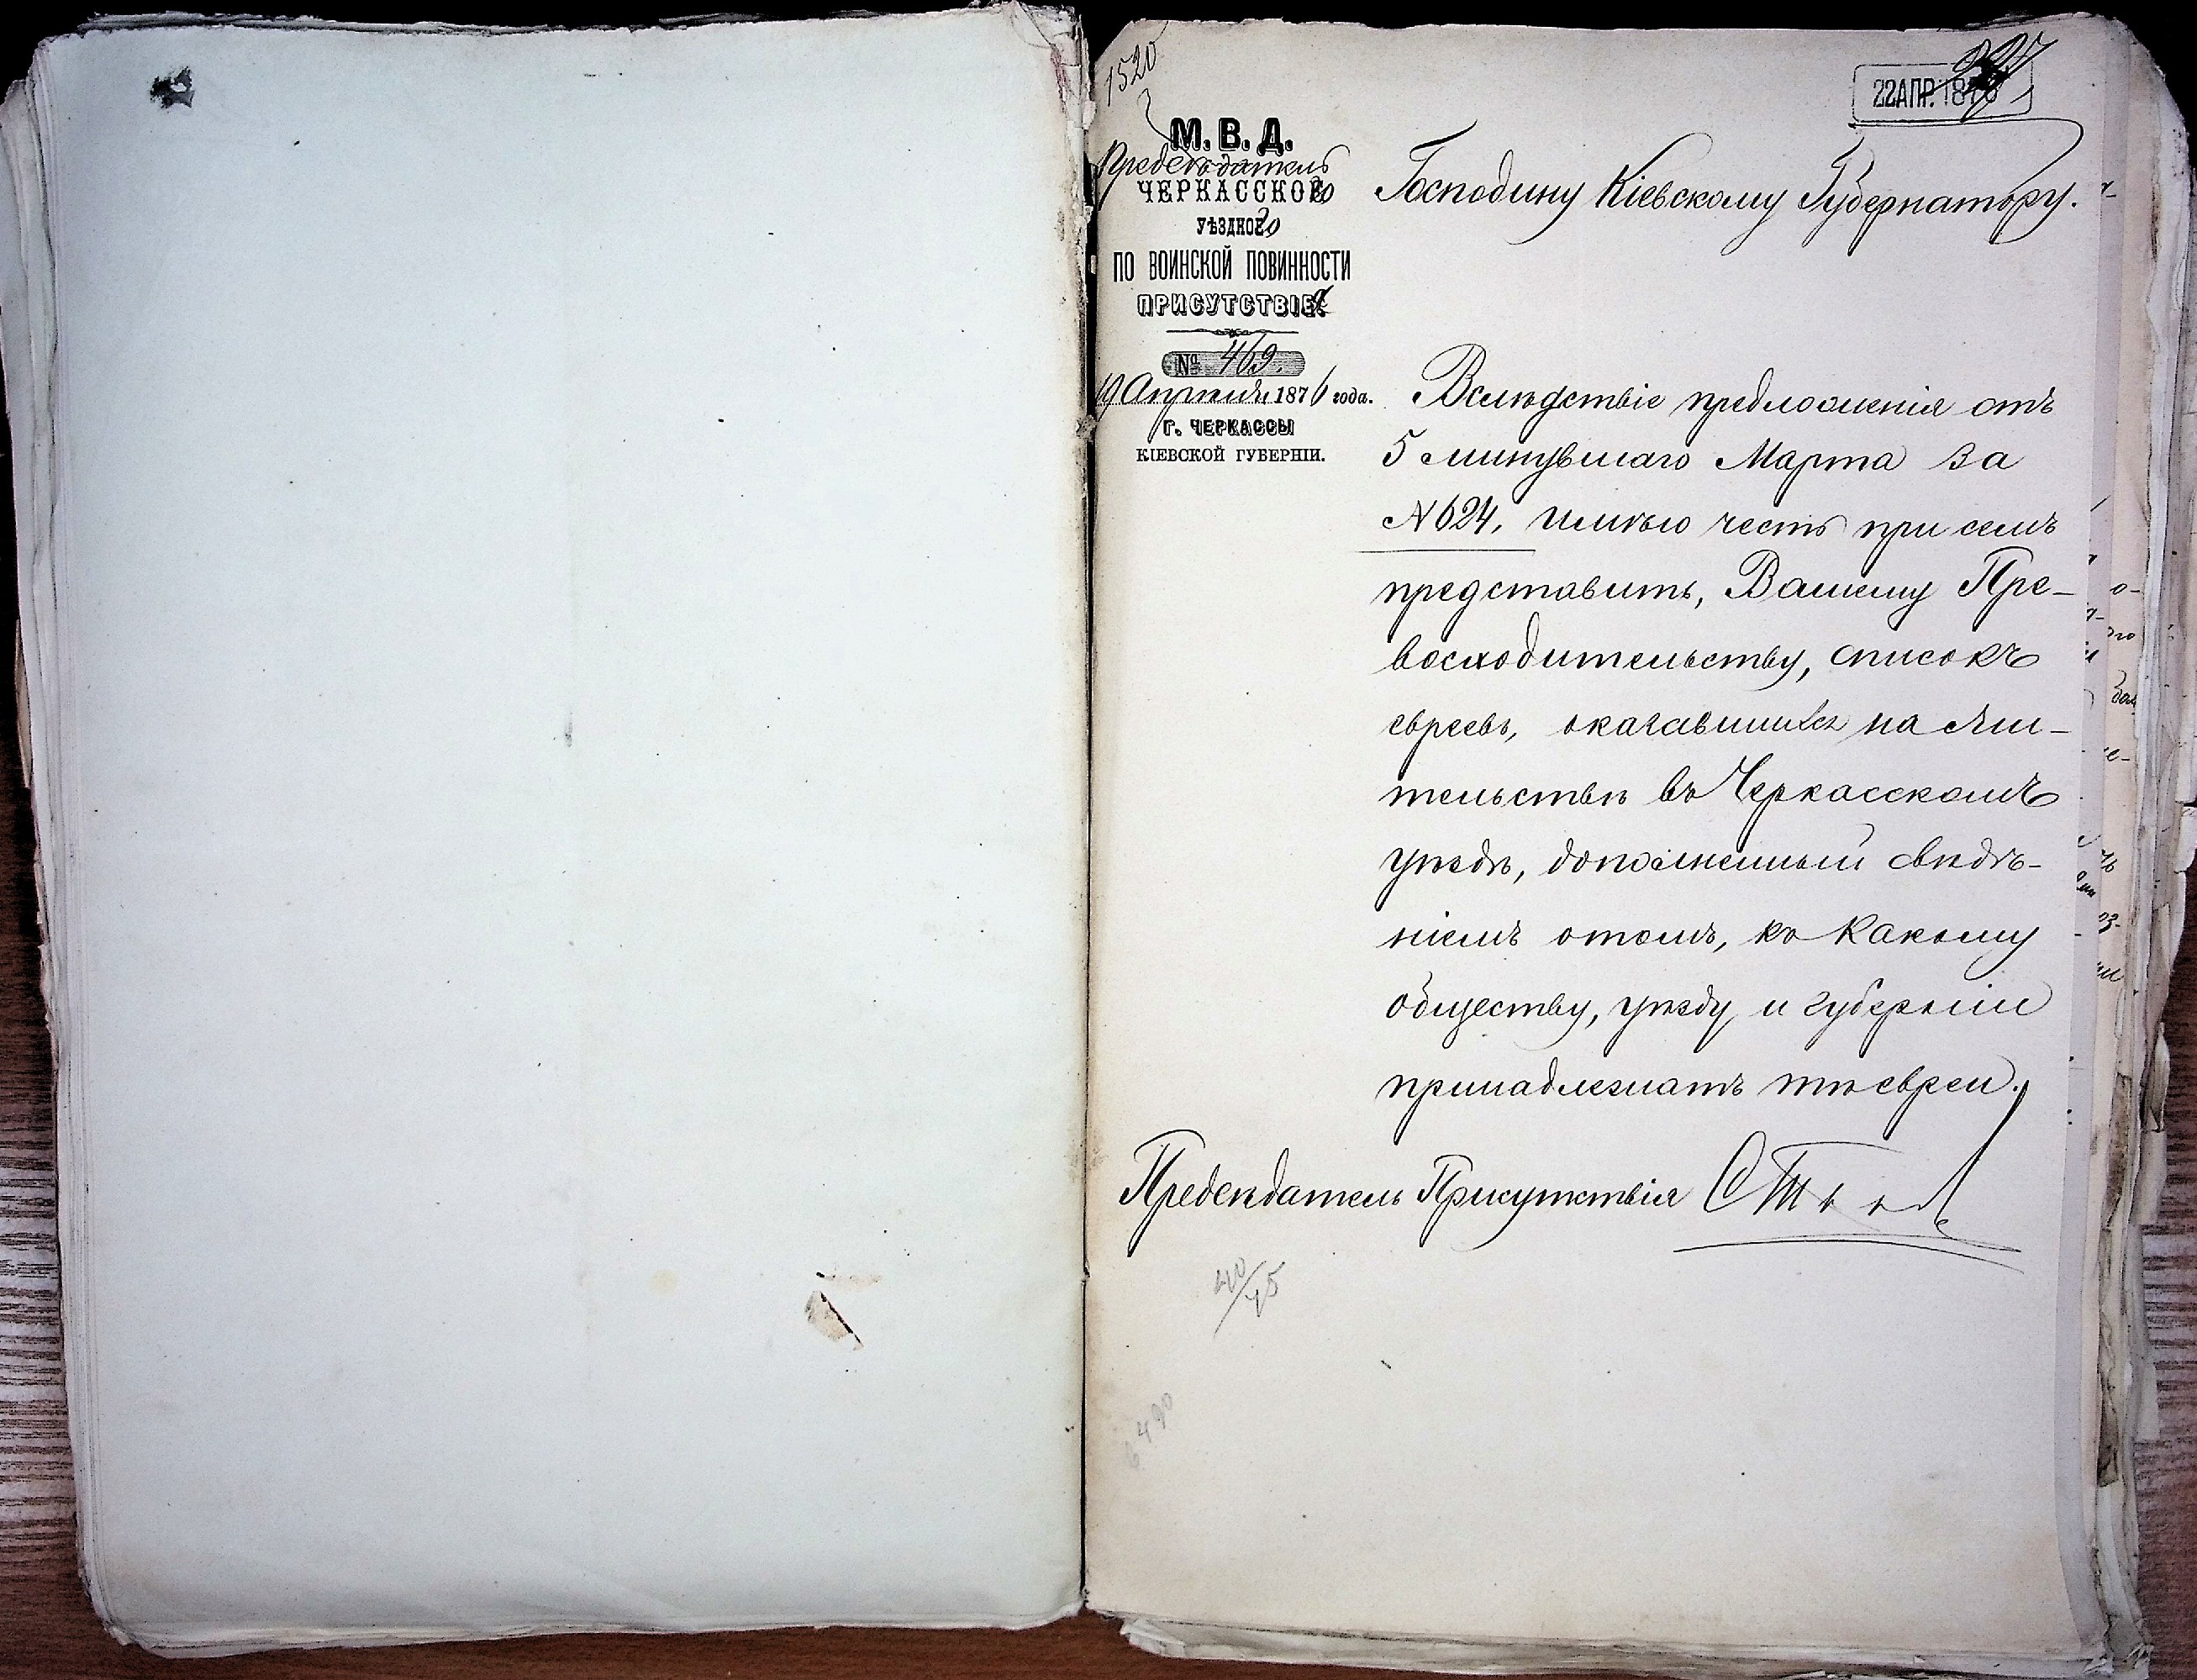 1520
22 АПР. 1876
М. В. Д.
Председатель
ЧЕРКАССКОго
УѢЗДНОго
ПО ВОИНСКОЙ ПОВИННОСТИ
ПРИСУТСТВІЯ
№ 469.
19 Апрѣля 1876 года.
Г. ЧЕРКАССЫ
КІЕВСКОЙ ГУБЕРНІИ.
Господину Кіевскому Губернатору.
Вслѣдствіе предложенія отъ
5 минувшаго Марта за
№ 624, имѣю честь при семъ
представить, Вашему Пре-
восходительству, списокъ
евреевъ, оказавшихся на жи-
тельствѣ въ Черкасскомъ
уѣздѣ, дополненный свѣдѣ-
ніемъ о томъ, къ какому
обществу, уѣзду и губерніи
принадлежатъ тѣ евреи.
Предсѣдатель Присутствія
40/45